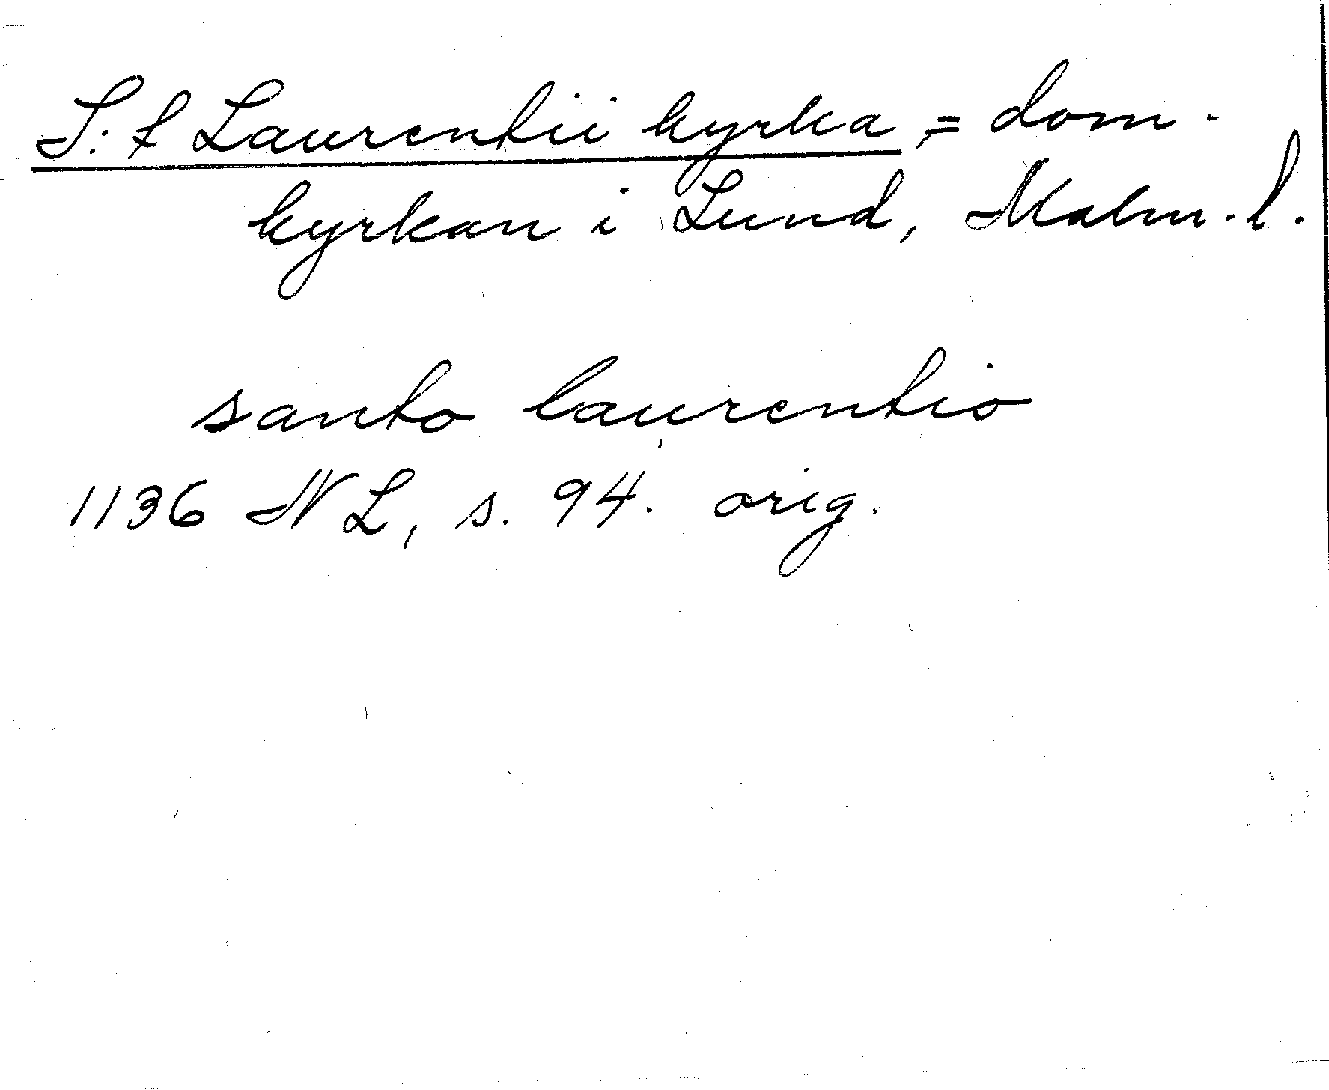 S:t Laurentii kyrka, = dom-
kyrkan i Lund, Malm. l.
santo laurentio
1136 NL, s. 94. orig.